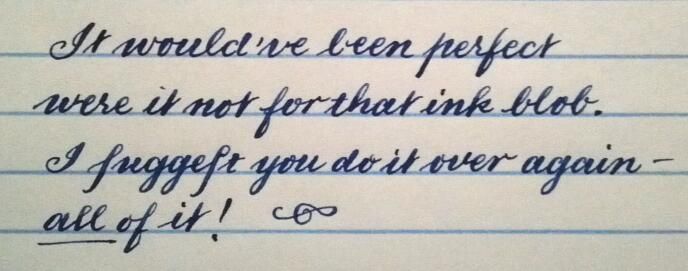 It would've been perfect
were it not for that ink blob.
I ſuggeſt you do it over again –
all of it!